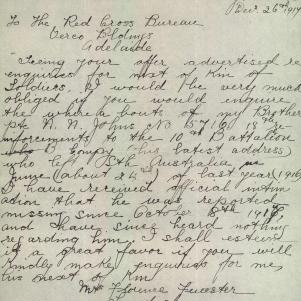 Dec. 26th 1917
To The Red Cross Bureau
Verco Bldings
Adelaide
Seeing your offer advertised re
enquiries for next of Kin of
Soldiers, I would be very much
obliged if you would enquire
the whereabouts of my Brother
pte N. N. Johns, No
inforcements to the 10th Battalion
B Compy (his latest address)
who left Sth Australia in
June (about 24) of last year (1916)
I have received official intim
ation that he was reported
missing since October 8th 1917
and have since heard nothing
regarding him, I shall esteem
it a great favor if you will
kindly make enquiries for me,
his next of Kin.
Mrs Florence